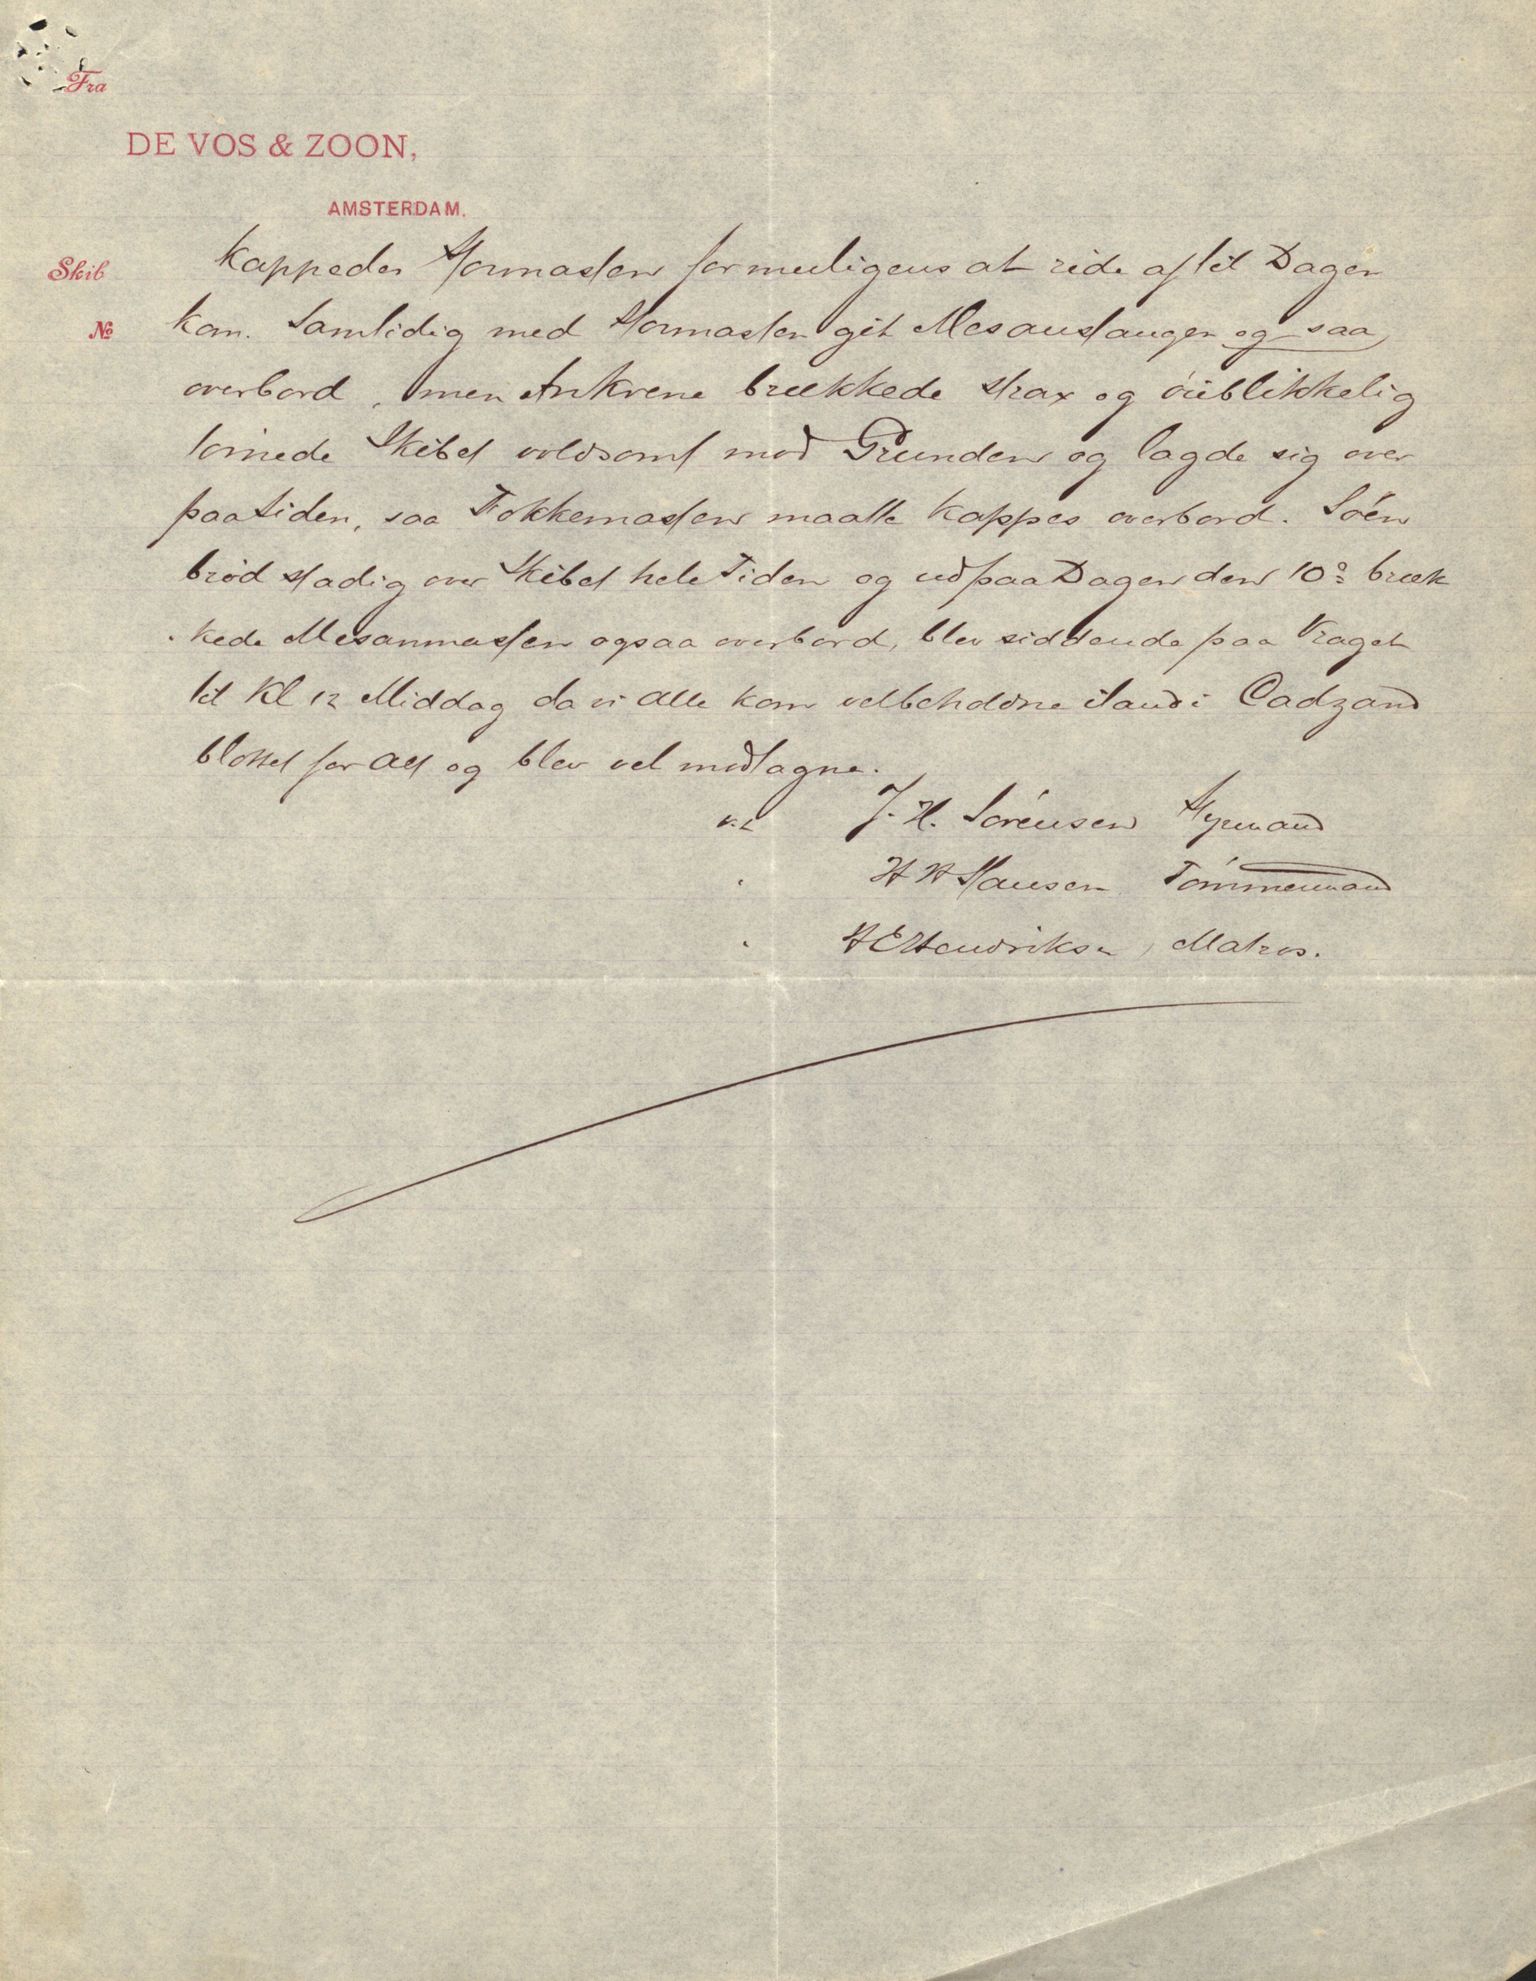 Fra
DE VOS & ZOON,
AMSTERDAM.
Skib
No
kappedes Stormasten for muligens at ride af til Dagen
kom. Samtidig med Stormasten gik Mesanstangen og saa
overbord, men Ankrene brækkede strax og øieblikkelig
tørnede Skibet voldsomt mod Grunden og lagde sig over
paa Siden, saa Fokkemasten maatte kappes overbord. Søen
brød stadig over Skibet hele Tiden og ud paa Dagen den 10de bræk
kede Mesanmasten ogsaa overbord, blev siddende paa Vraget
til Kl 12 Middag da vi alle kom velbeholdne iland i Cadzand
blottet for Alt og blev vel modtagne.
J. H. Sørensen Styrmand
H H Hansen Tømmermand
H E Hendriksen, Matros.